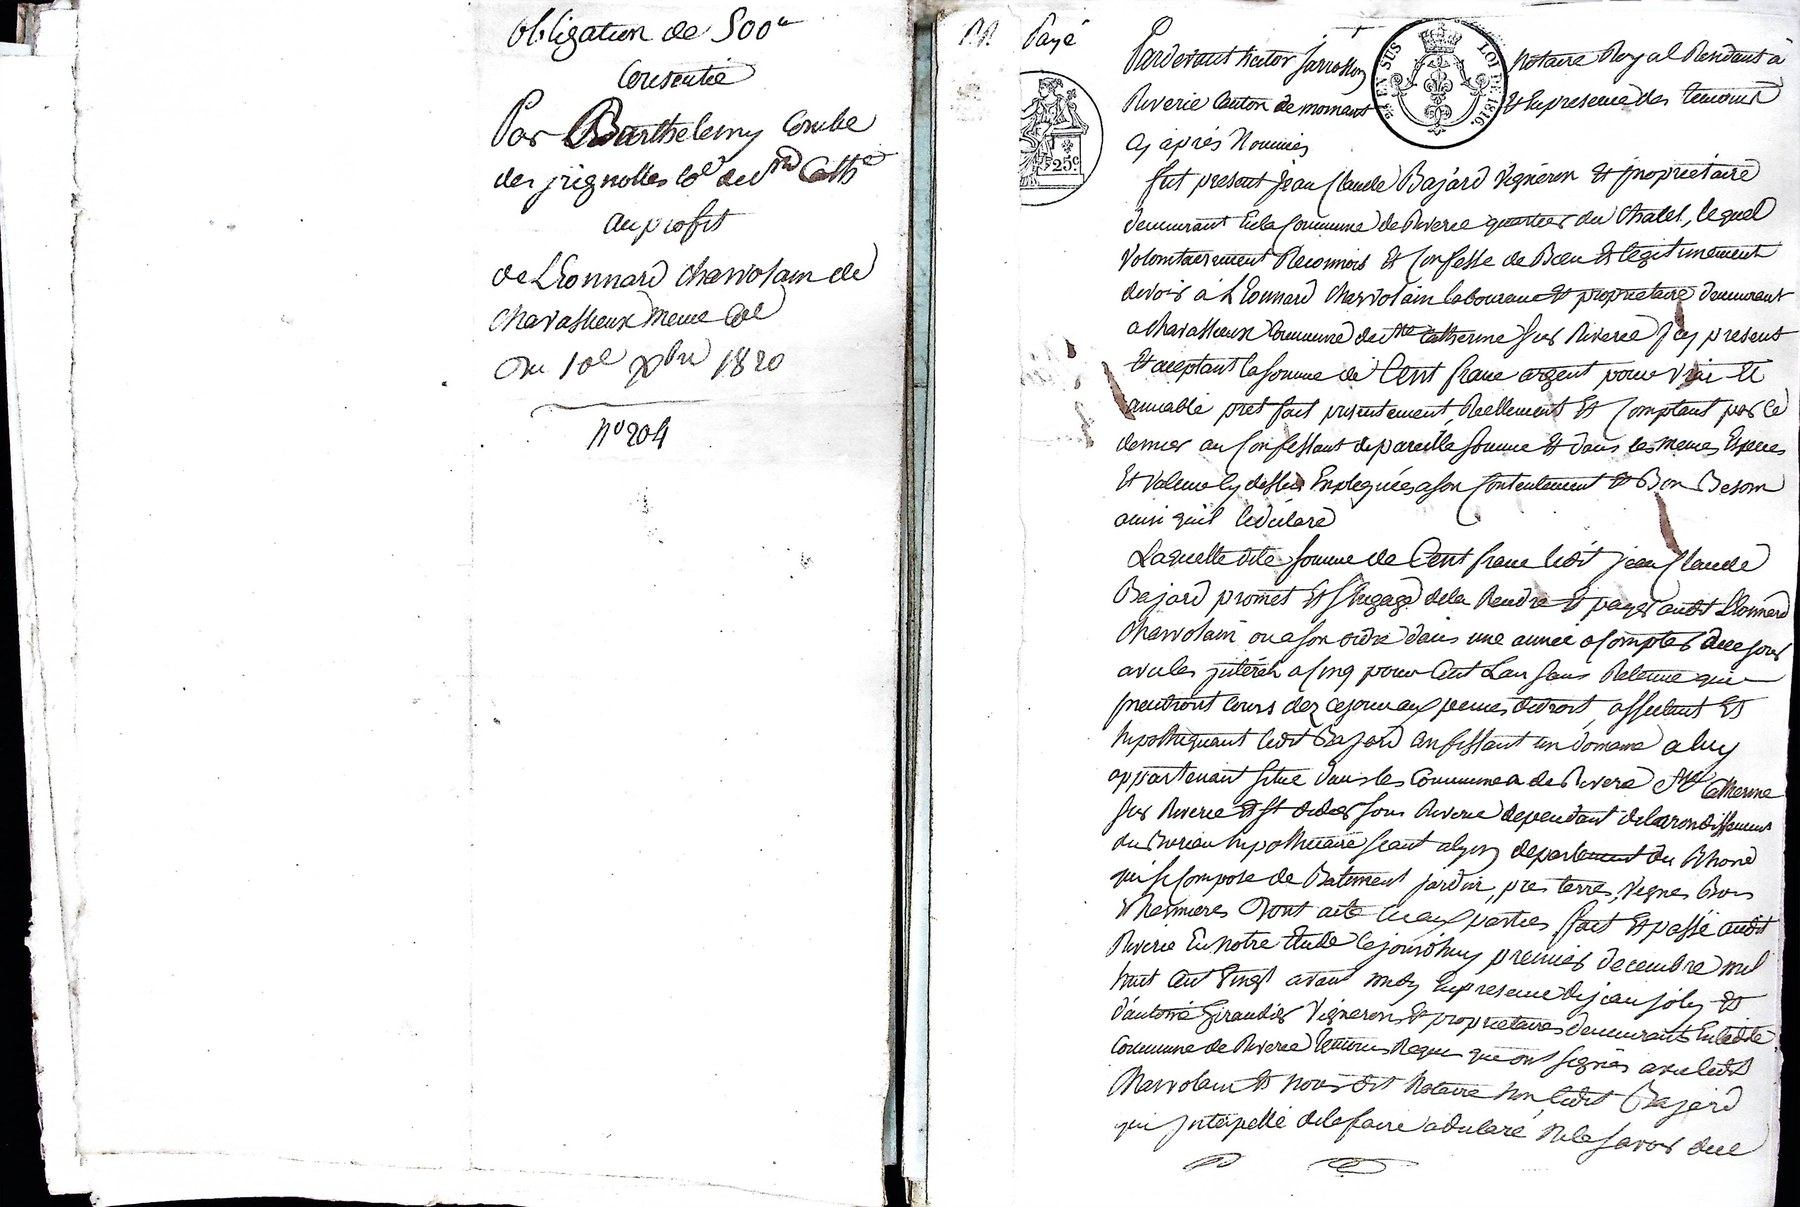 Obligation de 500"
Consentie
Par Barthelemy Combe
des jrignolles Coe de Ste Cathe
au profit
de Lèonnard Charvolain de
Chavassieux meme Coe
Du 10e Xbre 1820
N° 204
Payé
Pardevant hector jarrosson Notaire Royal Residant à
Riverie Canton de mornant Et En presence des temoins
Cy aprés Nommés
fut present jean Claude Bajard Vigneron Et proprietaire
demeurant En la Commune de Riverie quartier du Chatel, lequel
Volontairement Reconnois Et Confesse de Bien Et legitimement
devoir à Lèonnard Charvolain laboureur Et proprietaire demeurant
a chavassieux Commune de Ste Catherine Sur Riverie J cy present
Et aceptant la somme de Cent franc argent pour Vrai Et
amiable pret fait presentement, Reellement Et Comptant par ce
dernier au Confessant de pareille somme Et dans les memes Especes
Et Valeur Cy dessus Employées a son Contentement Et Bon Besoin
ainsi qu'il le declare
Laquelle dite somme de Cent franc ledit jean Claude
Bajard promet Et s'Engage de la Rendre Et payer audit Lèonnard
Charvolain ou a son ordre dans une année a Compter de ce jour
avec les jnterêts a Cinq pour Cent L'an sans Retenue qui
prendront Cours dez ce jour aux peines de droit, affectant Et
hipothequant ledit Bajard Confessant un domaine a luy
appartenant situé dans les Communes de Riverie Ste Catherine
Sur Riverie Et St didier sous Riverie dependant de l'arrondissement
du Bureau hipothecaire seant a lyon departement du Rhone
qui se Compose de Batiment jardin, pres terres, Vignes Bois
& hermieres Dont acte aux parties fait Et passé audit
Riverie En notre Etude Cejourd'huy premier decembre mil
huit Cent Vingt avant midy En presence de jean joly Et
d'antoine Giraudier Vignerons Et proprietaires demeurants En ladite
Commune de Riverie temoins Requis qui ont signés avec ledit
Charvolain Et nous dit Notaire non ledit Bajard
qui jnterpellé de le faire a declaré Ne le savoir de ce
EN SUS
LOI DE 1816.
25c.